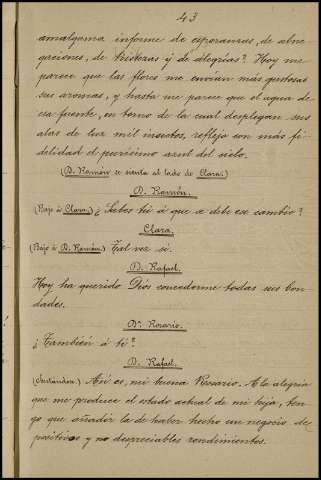 43
amalgama informe de esperanzas, de abne
gaciones, de tristezas y de alegrias? Hoy me
parece que las flores me envían más gustosas
sus aromas, y hasta me parece que el agua de
esa fuente, en torno de la cual desplegan sus
alas de luz mil insectos, refleja con más fi-
delidad el purísimo azul del cielo.
(D. Ramón se sienta al lado de Clara.)
D. Ramón.
(Bajo á Clara.) ¿Sabes tú á que se debe ese cambio?
Clara.
(Bajo á D. Ramón.) Tal vez sí.
D. Rafael.
Hoy ha querido Dios concederme todas sus bon-
dades.
Dª. Rosario.
¿También á ti?
D. Rafael.
(Sentándose.) Así es, mi buena Rosario. A la alegría
que me produce el estado actual de mi hija, ten
go que añadir la de haber hecho un negocio de
positivos y no despreciables rendimientos.